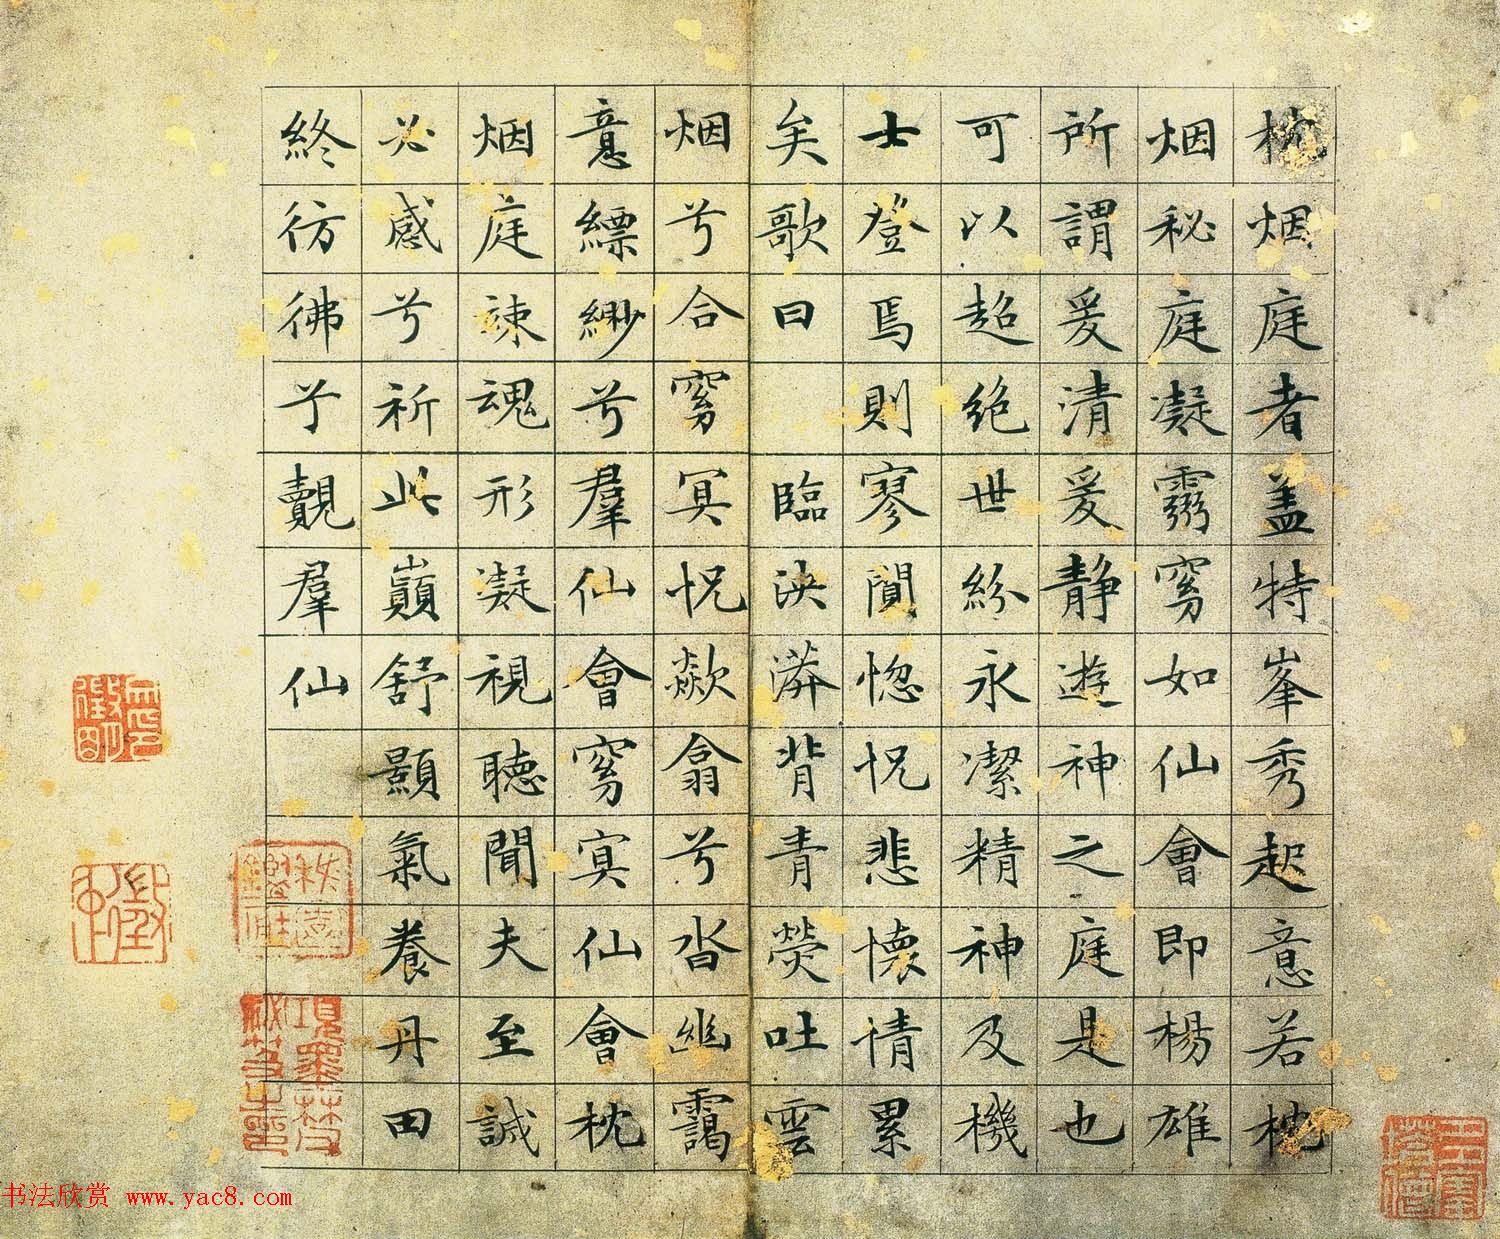 枕烟庭者盖特峯秀起意若枕
烟秘庭凝霛窈如仙會即楊雄
所謂爰清爰静遊神之庭是也
可以超絶世紛永潔精神及機
士登焉則寥閴惚怳悲懷情累
矣歌曰 臨泱漭背青熒吐雲
烟兮合窈冥怳歘翕兮沓幽靄
意縹緲兮羣仙會窈㝠仙會枕
烟庭竦魂形凝視聽聞夫至誠
必感兮祈此巔舒顥氣養丹田
終彷彿兮覿羣仙
书法欣赏 www.yac8.com